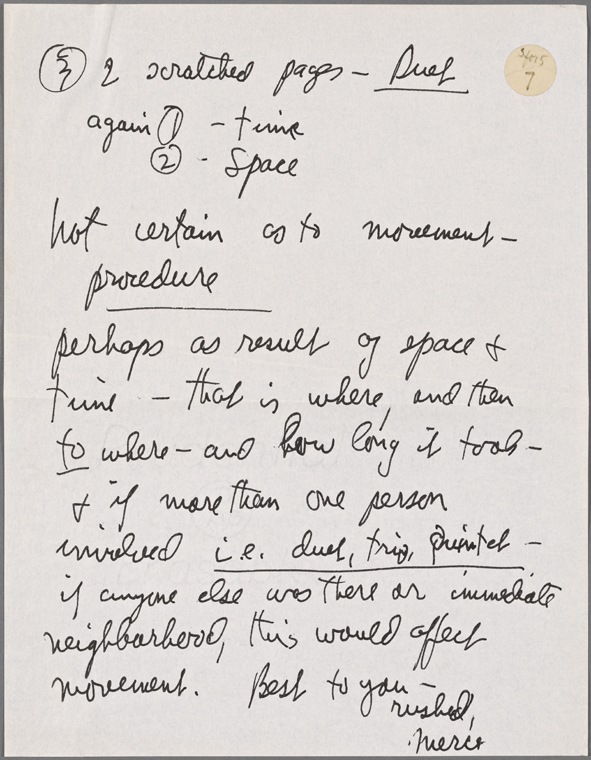 ③ 2 scratched pages – Duet
7
again ① – time
② - Space
Not certain as to movement –
procedure
perhaps as result of space &
time – that is where, and then
to where – and how long it took –
& if more than one person
involved i.e. duet, trio, quintet –
if anyone else was there or immediate
neighborhood, this would affect
movement. Best to you –
rushed,
Merce